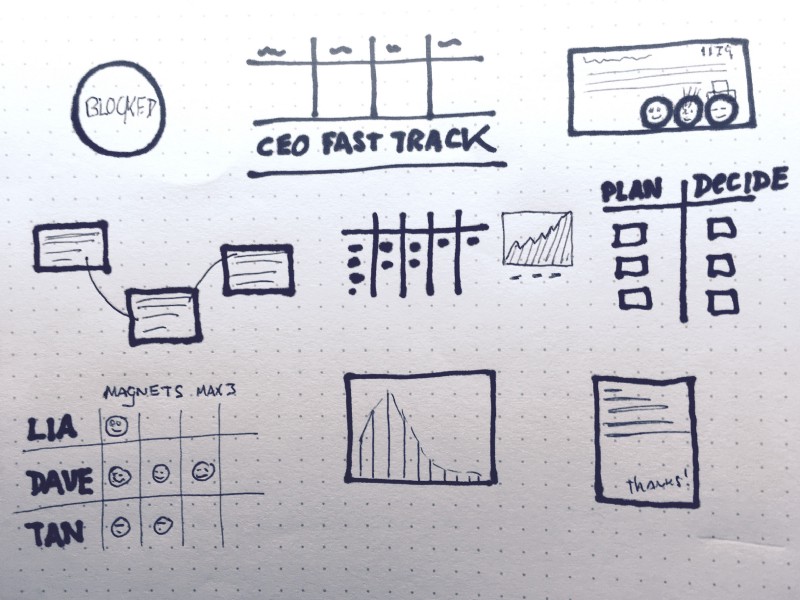 BLOCKED
CEO FAST TRACK
PLAN DECIDE
MAGNETS MAX 3
LIA
DAVE
TAN
Thanks!